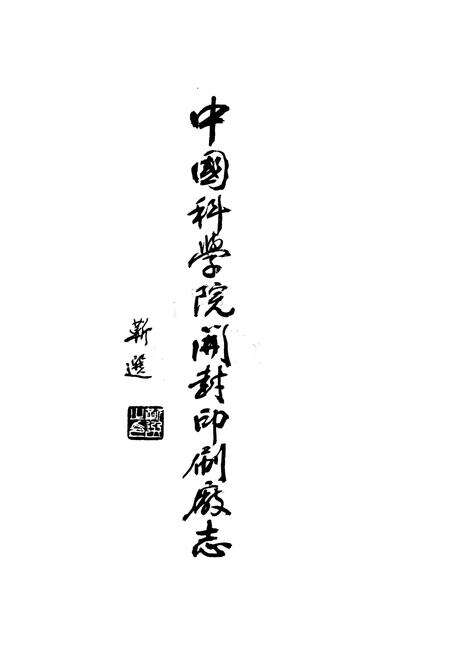 中國科學院開封印刷廠志
靳選